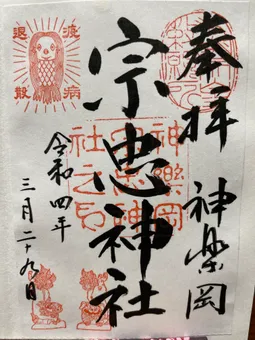 奉拝
神楽岡
宗忠神社
神樂岡
宗忠神
社之印
疫病
退散
令和四年
三月二十九日